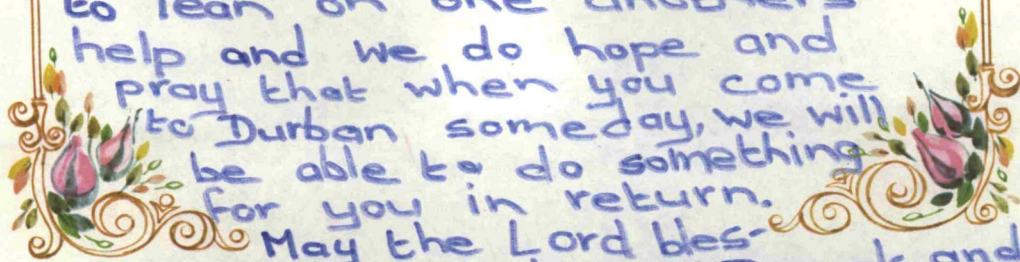 to lean on one anothers
help and we do hope and
pray that when you come
to Durban someday, we will
be able to do something
for you in return.
May the Lord bles-
and